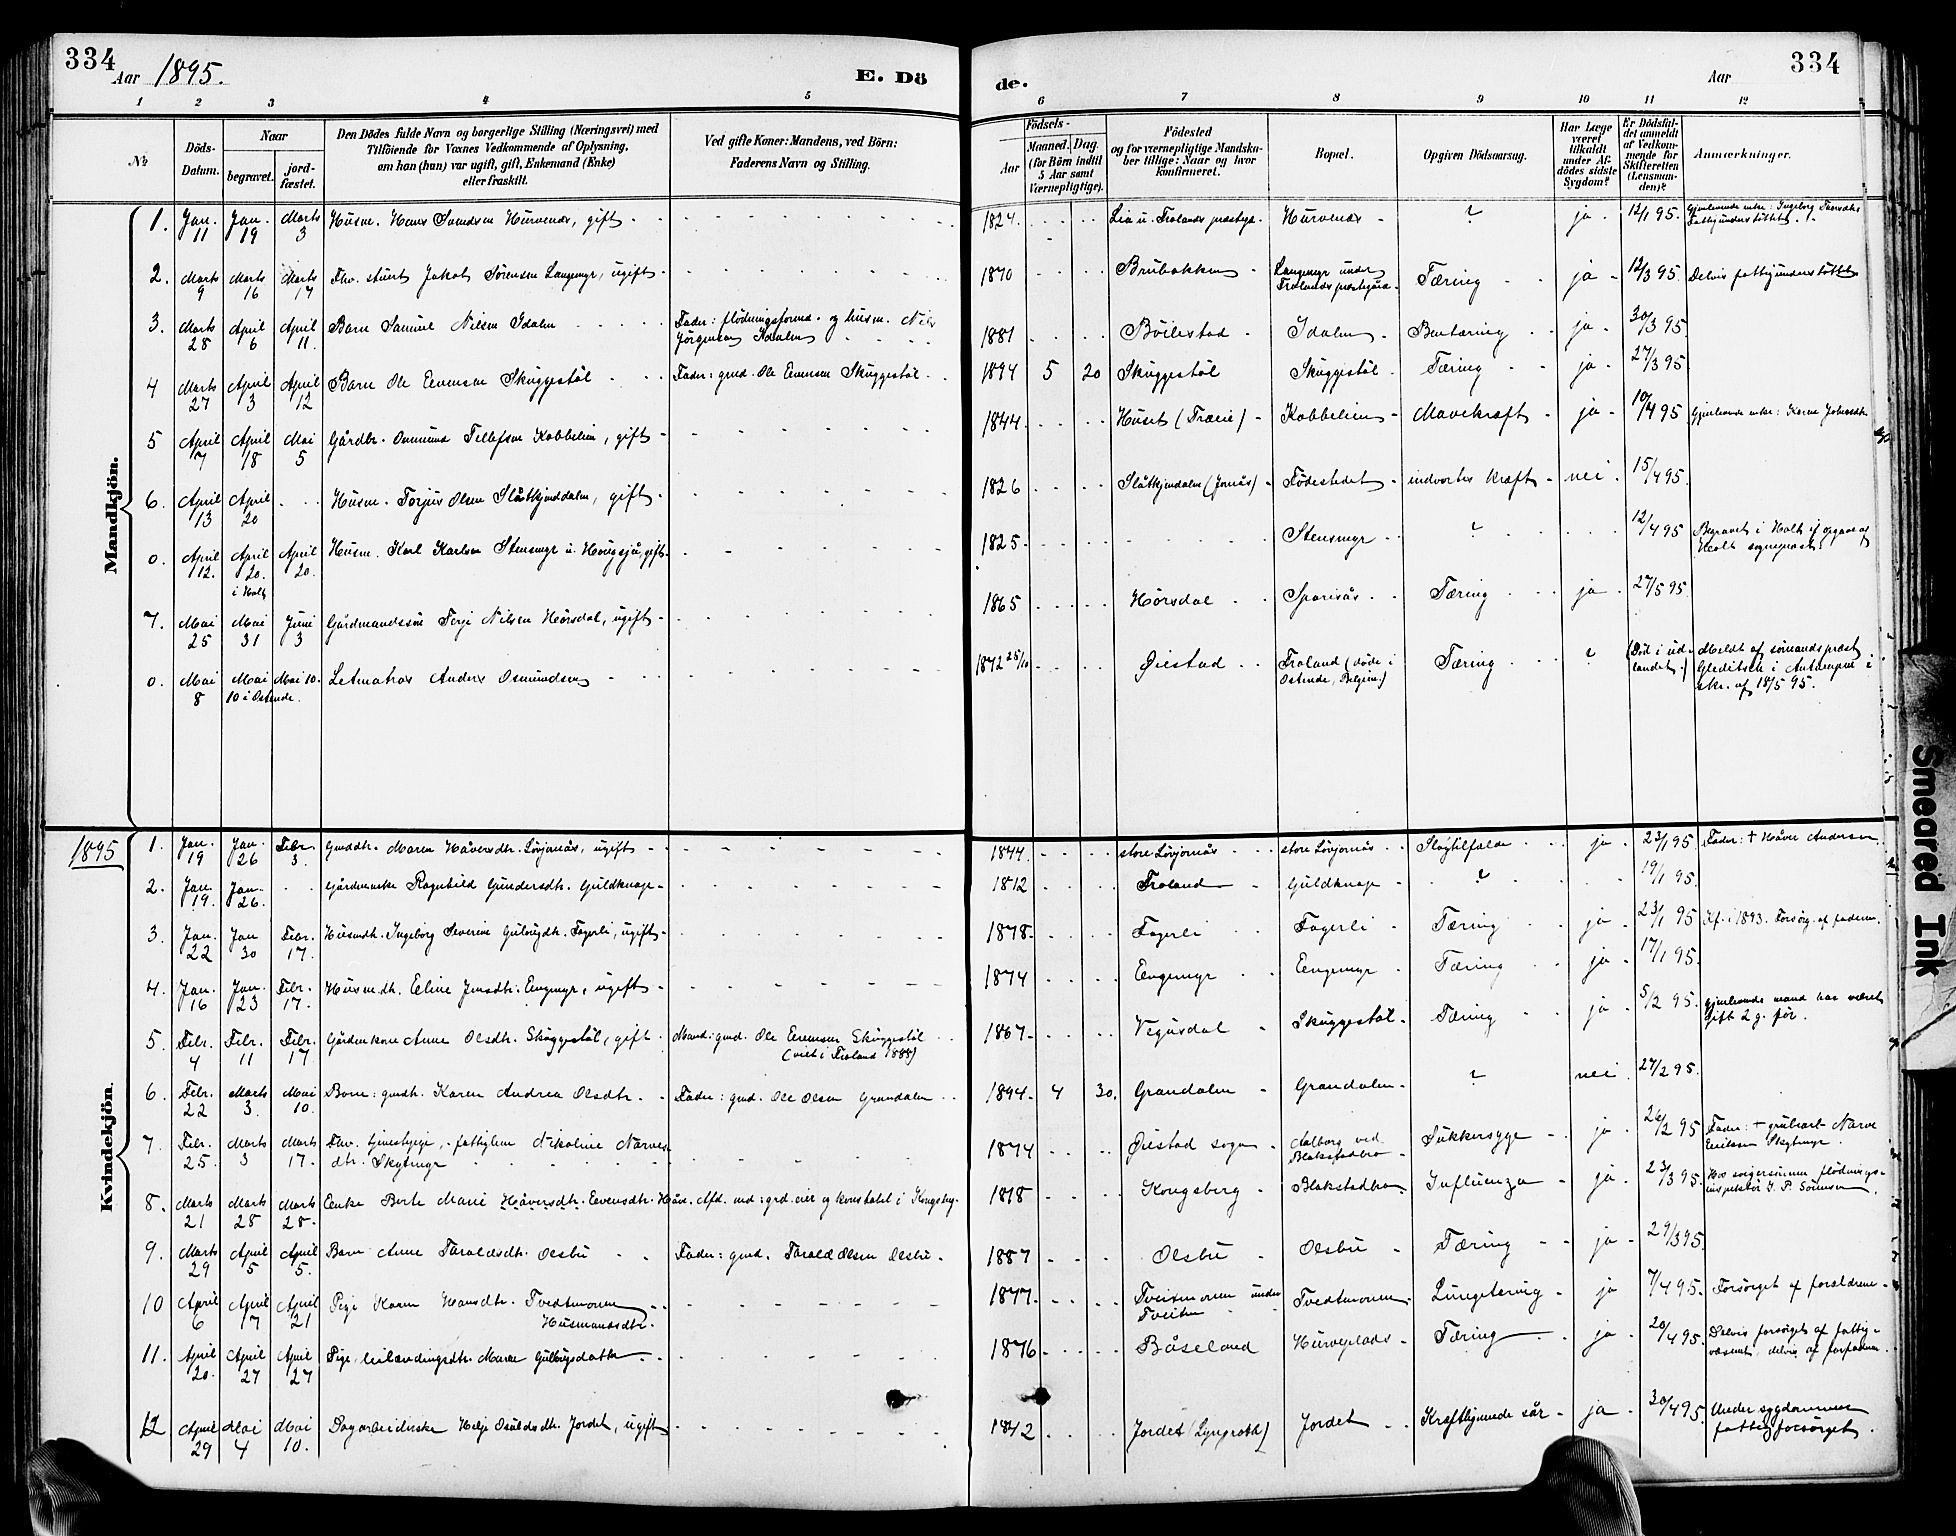 334
Aar 1895.
E. Dö
de.
Aar
334
1 2 3 4 5 6 7 8 9 10 11 12
№
Döds-
Datum.
Naar
begravet.
jord-
fæstet.
Den Dödes fulde Navn og borgerlige Stilling (Næringsvei) med
Tilföiende for Voxnes Vedkommende af Oplysning,
om han (hun) var ugift, gift, Enkemand (Enke)
eller fraskilt.
Ved gifte Koner: Mandens, ved Börn:
Faderens Navn og Stilling.
Födsels-
Aar
Maaned. Dag.
(for Börn indtil
5 Aar samt
Værnepligtige).
Födested
og for værnepligtige Mandska-
ber tillige: Naar og hvor
konfirmeret.
Bopæl.
Opgiven Dödsaarsag.
Har Læge
været
tilkaldt
under Af-
dödes sidste
Sygdom?
Er Dödsfal-
det anmeldt
af Vedkom-
mende for
Skifteretten
(Lensman-
den)?
Anmærkninger.
Mandkjön.
1. Jan. 11 Jan. 19 Marts 3 Husm. Hans Svendsen Hurvenes, gift 1824 Lia u. Frolands præstegd. Hurvenes ? ja 12/1 95. Gjenlevende enke: Ingeborg
Fattigunderstöttet.
2. Marts 9 Marts 16 Marts 17 Fhv. stuert Jakob Sørensen Langmyr, ugift 1870 Brubakken Langmyr under
Frolands præstegård Tæring ja 12/3 95. Delvis fattigunderstöttet
3. Marts 28 April 6 April 11. Barn Samuel Nilsen Idalen Fader: flödningsformd. og husm. Nils
Jörgensen Idalen 1881 Böilestad Idalen Bentæring ja 30/3 95.
4 Marts 27 April 3 April 12 Barn Ole Evensen Skuggestöl Fader: gmd. Ole Evensen Skuggestöl 1894 5 20 Skuggestöl Skuggestöl Tæring ja 27/3 95.
5 April 7 April 18 Mai 5 Gårdbr. Osmund Tellefsen Kobbelien, gift 1844 Huset (Træie) Kobbelien Mavekræft ja 10/4 95 Gjenlevende enke: Karen
6. April 13 April 20 Husm. Torjus Olsen Slåtkjendalen, gift 1826 Slåtkjendalen (Jornås) Födestedet indvortes Kræft nei 15/4 95.
0. April 12. April 20. i Holt April 20. Husm. Karl Karlsen Stensmyr u. Hougsjå, gift 1825 Stensmyr ? 12/4 95 Begravet i Holt if. opgave af
Holt sogneprest.
7. Mai 25 Mai 31 Juni 3 Gårdmandssön Terje Nilsen Hörsdal, ugift 1865 Hörsdal Sparsås Tæring ja 27/5 95
0. Mai 8 Mai 10 i Ostende. Mai 10. Letmatros Anders Osmundsen 1872 25/10 Øiestad Froland (døde i
Ostende, Belgien.) Tæring ? (Död i ud-
landet.) Meldt af sömandsprest
Gleditsch i Antwerpen i
skr. af 18/5 95.
1895
Kvindekjön.
1. Jan. 19 Jan. 26 Febr. 3. Gmddtr. Maren Håversdtr. Lövjomås, ugift 1844. store Lövjomås store Lövjomås Slagtilfælde ja 23/1 95. Fader: † Håver Andersen
2. Jan. 19. Jan. 26. Gårdmenke Ragnhild Gundersdtr. Guldknap 1812 Froland Guldknap ? 19/1 95.
3. Jan. 22 Jan 30 Febr. 17. Husmdtr. Ingeborg Severine Gulougdtr. Fagerli, ugift 1878 Fagerli Fagerli Tæring ja 23/1 95 Kf. i 1893. Forsörg. af faderen.
4. Jan. 16 Jan. 23 Febr. 17. Husmdtr. Eline Jensdtr. Eengmyr, ugift 1874 Eengmyr Eengmyr Tæring ja 17/1 95.
5. Febr. 4 Febr. 11 Febr. 17 Gårdmkone Anne Olsdtr. Skuggestöl, gift Mand: gmd. Ole Evensen Skuggestöl
(viet i Froland 1888) 1867 Vegusdal Skuggestöl Tæring ja 5/2 95. Gjenlevende mand har været
gift 2 g. för.
6. Febr. 22 Marts 3. Mai 10. Barn: gmdtr. Karen Andrea Olsdtr. Fader: gmd. Ole Olsen Grandalen 1894 4 30. Grandalen Grandalen ? nei 27/2 95.
7. Febr. 25. Marts 3 Marts 17. Fhv. tjenestpige, fattiglem Nikoline Narves-
dtr. Skytmyr 1874 Øiestad sogn Aalborg ved
Blakstadbro Sukkersyge ja 26/2 95 Fader: † grubearb. Narve
Eriksen Skytmyr.
8. Marts 21 Marts 28 Marts 28. Enke Berte Marie Håversdtr. Evensdtr. 1818 Kongsberg Blakstadbro Influenza ja 23/3 95. Hos svigersönnen flödnings-
inspektör J. P. Sörensen
9. Marts 29 April 5 April 5. Barn Anne Taraldsdtr. Olsbu Fader: gmd. Tarald Olsen Olsbu 1887 Olsbu Olsbu Tæring ja 29/3 95.
10 April 6 April 17 April 21 Pige Karen Hansdtr. Tvedtmoren
Husmandsdtr. 1877. Tveitmoren under
Tveiten Tvedtmoren Lungetæring ja 7/4 95. Forsörget af forældrene
11. April 20. April 27 April 27 Pige, Maren Gulougsdatter 1876 Båseland Tæring ja 20/4 95. Delvis forsörget af fattig-
væsenet, delvis af
12 April 29 Mai 4 Mai 10. Dagarbeiderske Helje Osuldsdtr. Jordet, ugift 1842 Jordet (Lyngroth) Jordet Kræftlignende sår ja 30/4 95. Under sygdommen
fattigforsörget.
Smeared Ink